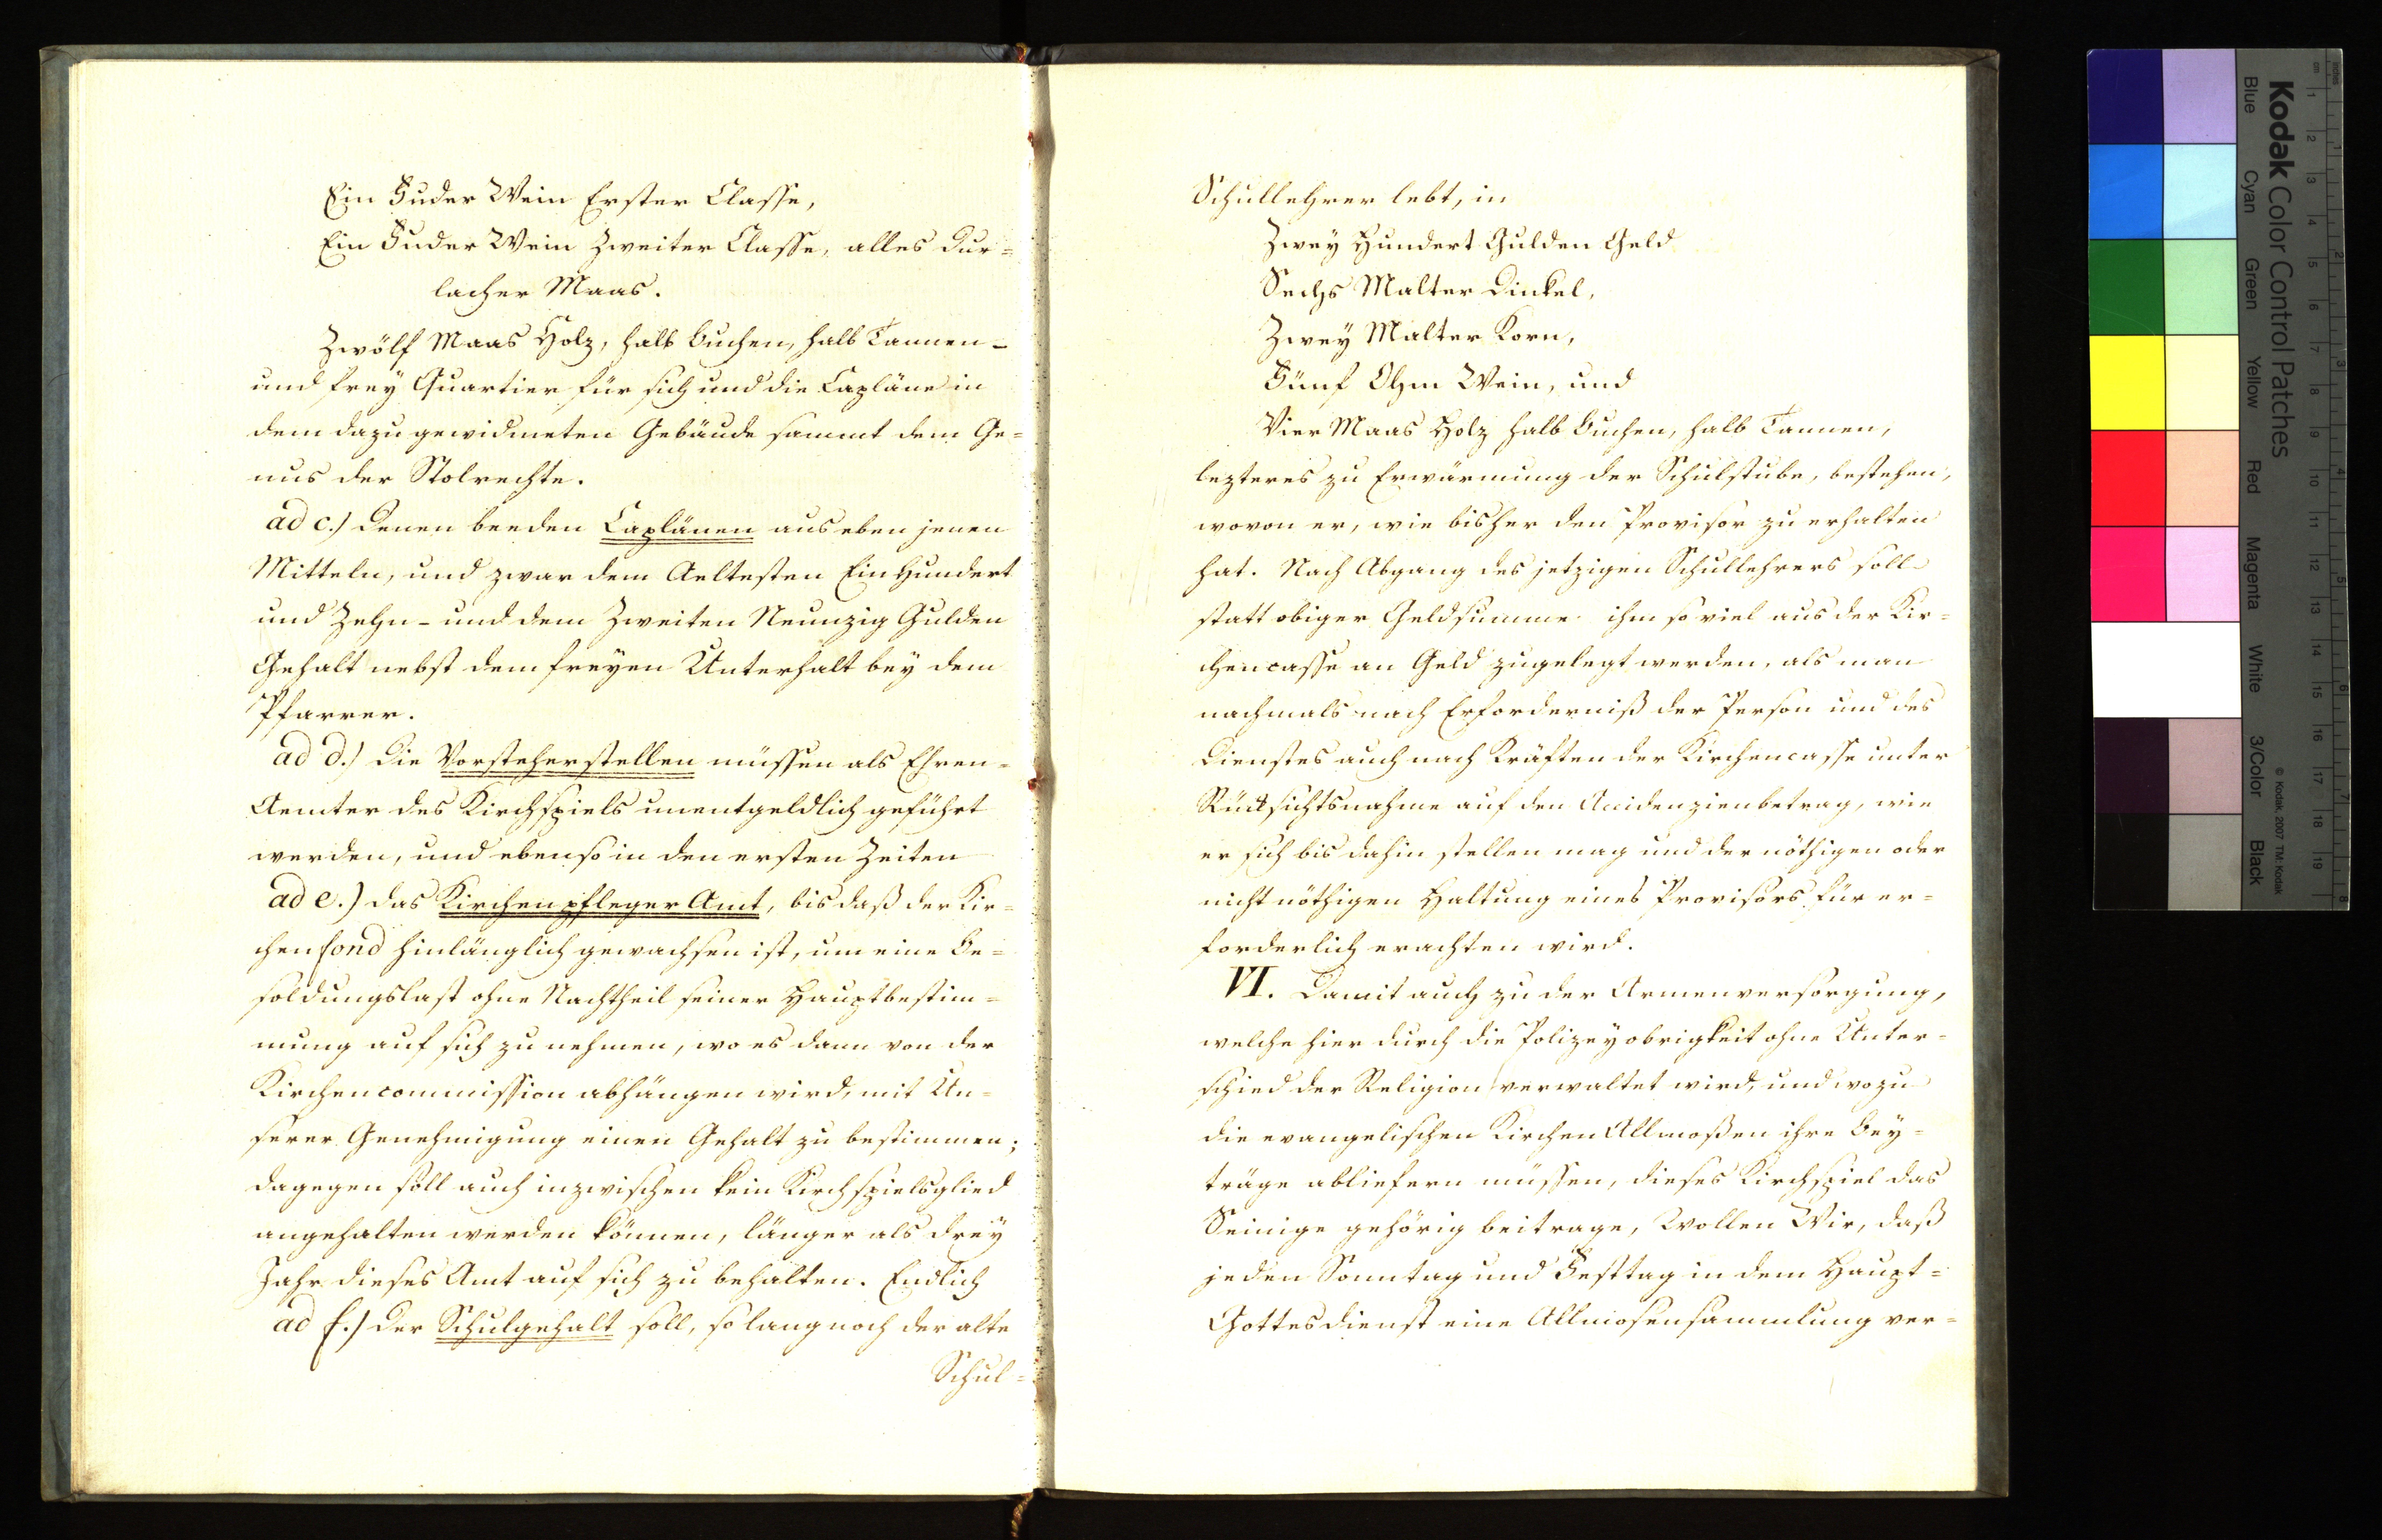 Ein Fuder Wein Erster Classe,
Ein Fuder Wein Zweiter Classe, alles Dur=
lacher Maas.
Zwölf Maas Holz, halb buchen, halb Tannen-
und frey Quartier für sich und die Capläne in
dem dazu gewidmeten Gebäude sammt dem Ge=
nus der Stolrechte.
ad c.) Denen beeden Caplänen aus eben jenen
Mitteln, und zwar dem Aeltesten Ein Hundert
und Zehn- und dem Zweiten Neunzig Gulden
Gehalt nebst dem freyen Unterhalt bey dem
Pfarrer.
ad d.) Die Vorsteherstellen müssen als Ehren=
Aemter des Kirchspiels unentgeldlich geführt
werden, und ebenso in den ersten Zeiten
ad e.) das Kirchenpfleger Amt, bis daß der Kir=
chenfond hinlänglich gewachsen ist, um eine Be=
soldungslast ohne Nachtheil seiner Hauptbestim=
mung auf sich zu nehmen, wo es dann von der
Kirchencommission abhängen wird, mit Un=
serer Genehmigung einen Gehalt zu bestimmen;
dagegen soll auch inzwischen kein Kirchspielsglied
angehalten werden können, länger als drey
Jahr dieses Amt auf sich zu behalten. Endlich
ad f.) Der Schulgehalt soll, so lang noch der alte
Schul=
Schullehrer lebt, in
Zwey Hundert Gulden Geld
Sechs Malter Dinkel,
Zwey Malter Korn,
Fünf Ohm Wein, und
Vier Maas Holz halb buchen, halb Tannen,
lezteres zu Erwärmung der Schulstube, bestehen,
wovon er, wie bisher den Provisor zu erhalten
hat. Nach Abgang des jetzigen Schullehrers soll
statt obiger Geldsumme ihm so viel aus der Kir=
chencasse an Geld zugelegt werden, als man
nachmals nach Erforderniß der Person und des
Dienstes auch nach Kräften der Kirchencasse unter
Rücksichtsnahme auf den Accidenzienbetrag, wie
er sich bis dahin stellen mag und der nöthigen oder
nicht nöthigen Haltung eines Provisors für er=
forderlich erachten wird.
VI. Damit auch zu der Armenversorgung,
welche hier durch die Polizeyobrigkeit ohne Unter=
schied der Religion verwaltet wird, und wozu
die evangelischen Kirchen Allmoßen ihre Bey=
träge abliefern müssen, dieses Kirchspiel das
Seinige gehörig beitrage, Wollen Wir, daß
jeden Sonntag und Festtag in dem Haupt=
Gottesdienst eine Allmosensammlung ver=
Kodak Color Control Patches
Blue Cyan Green Yellow Red Magenta White 3/Color Black
© Kodak, 2007 TM: Kodak
inches 1 2 3 4 5 6 7 8
cm 1 2 3 4 5 6 7 8 9 10 11 12 13 14 15 16 17 18 19